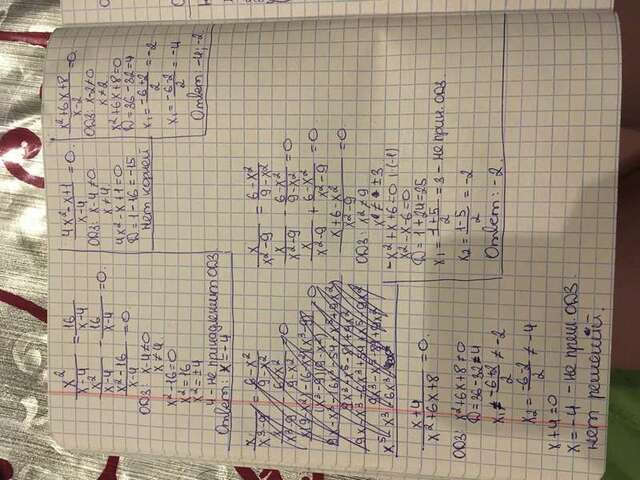 x²/x-4 = 16/x-4
x²/x-4 - 16/x-4 = 0.
x²-16/x-4 = 0
ОДЗ: x-4≠0
x≠4
x²-16=0
x²=16
x²=±4
4 - не принадлежит ОДЗ
Ответ: x = -4
4x²-x+1/x-4 = 0.
ОДЗ: x-4≠0
x≠4
4x²-x+1=0
D=1-16=-15
Нет корней
x²+6x+8/x-2 = 0.
ОДЗ: x-2≠0
x≠2
x²+6x+8=0
D=36-32=4
x₁ = -6+2/2 = -2
x₁ = -6-2/2 = -4
Ответ: -4; -2
x/x²-9 = 6-x²/9-x²
x/x²-9 - 6-x²/9-x² = 0
x/x²-9 + 6-x²/x²-9 = 0
x+6-x²/x²-9 = 0
ОДЗ: x²≠9
x≠±3
-x²+x+6=0 |·(-1)
x²-x-6=0
D=1+24=25
x₁ = 1+5/2 = 3 - не прин. ОДЗ
x₂ = 1-5/2 = -2
Ответ: -2.
x+4/x²+6x+8 = 0.
ОДЗ: x²+6x+8≠0
D=36-32=4
x₁ ≠ -6+2/2 ≠ -2
x₂ = -6-2/2 ≠ -4
x+4=0
x=-4 - не прин ОДЗ.
нет решений.